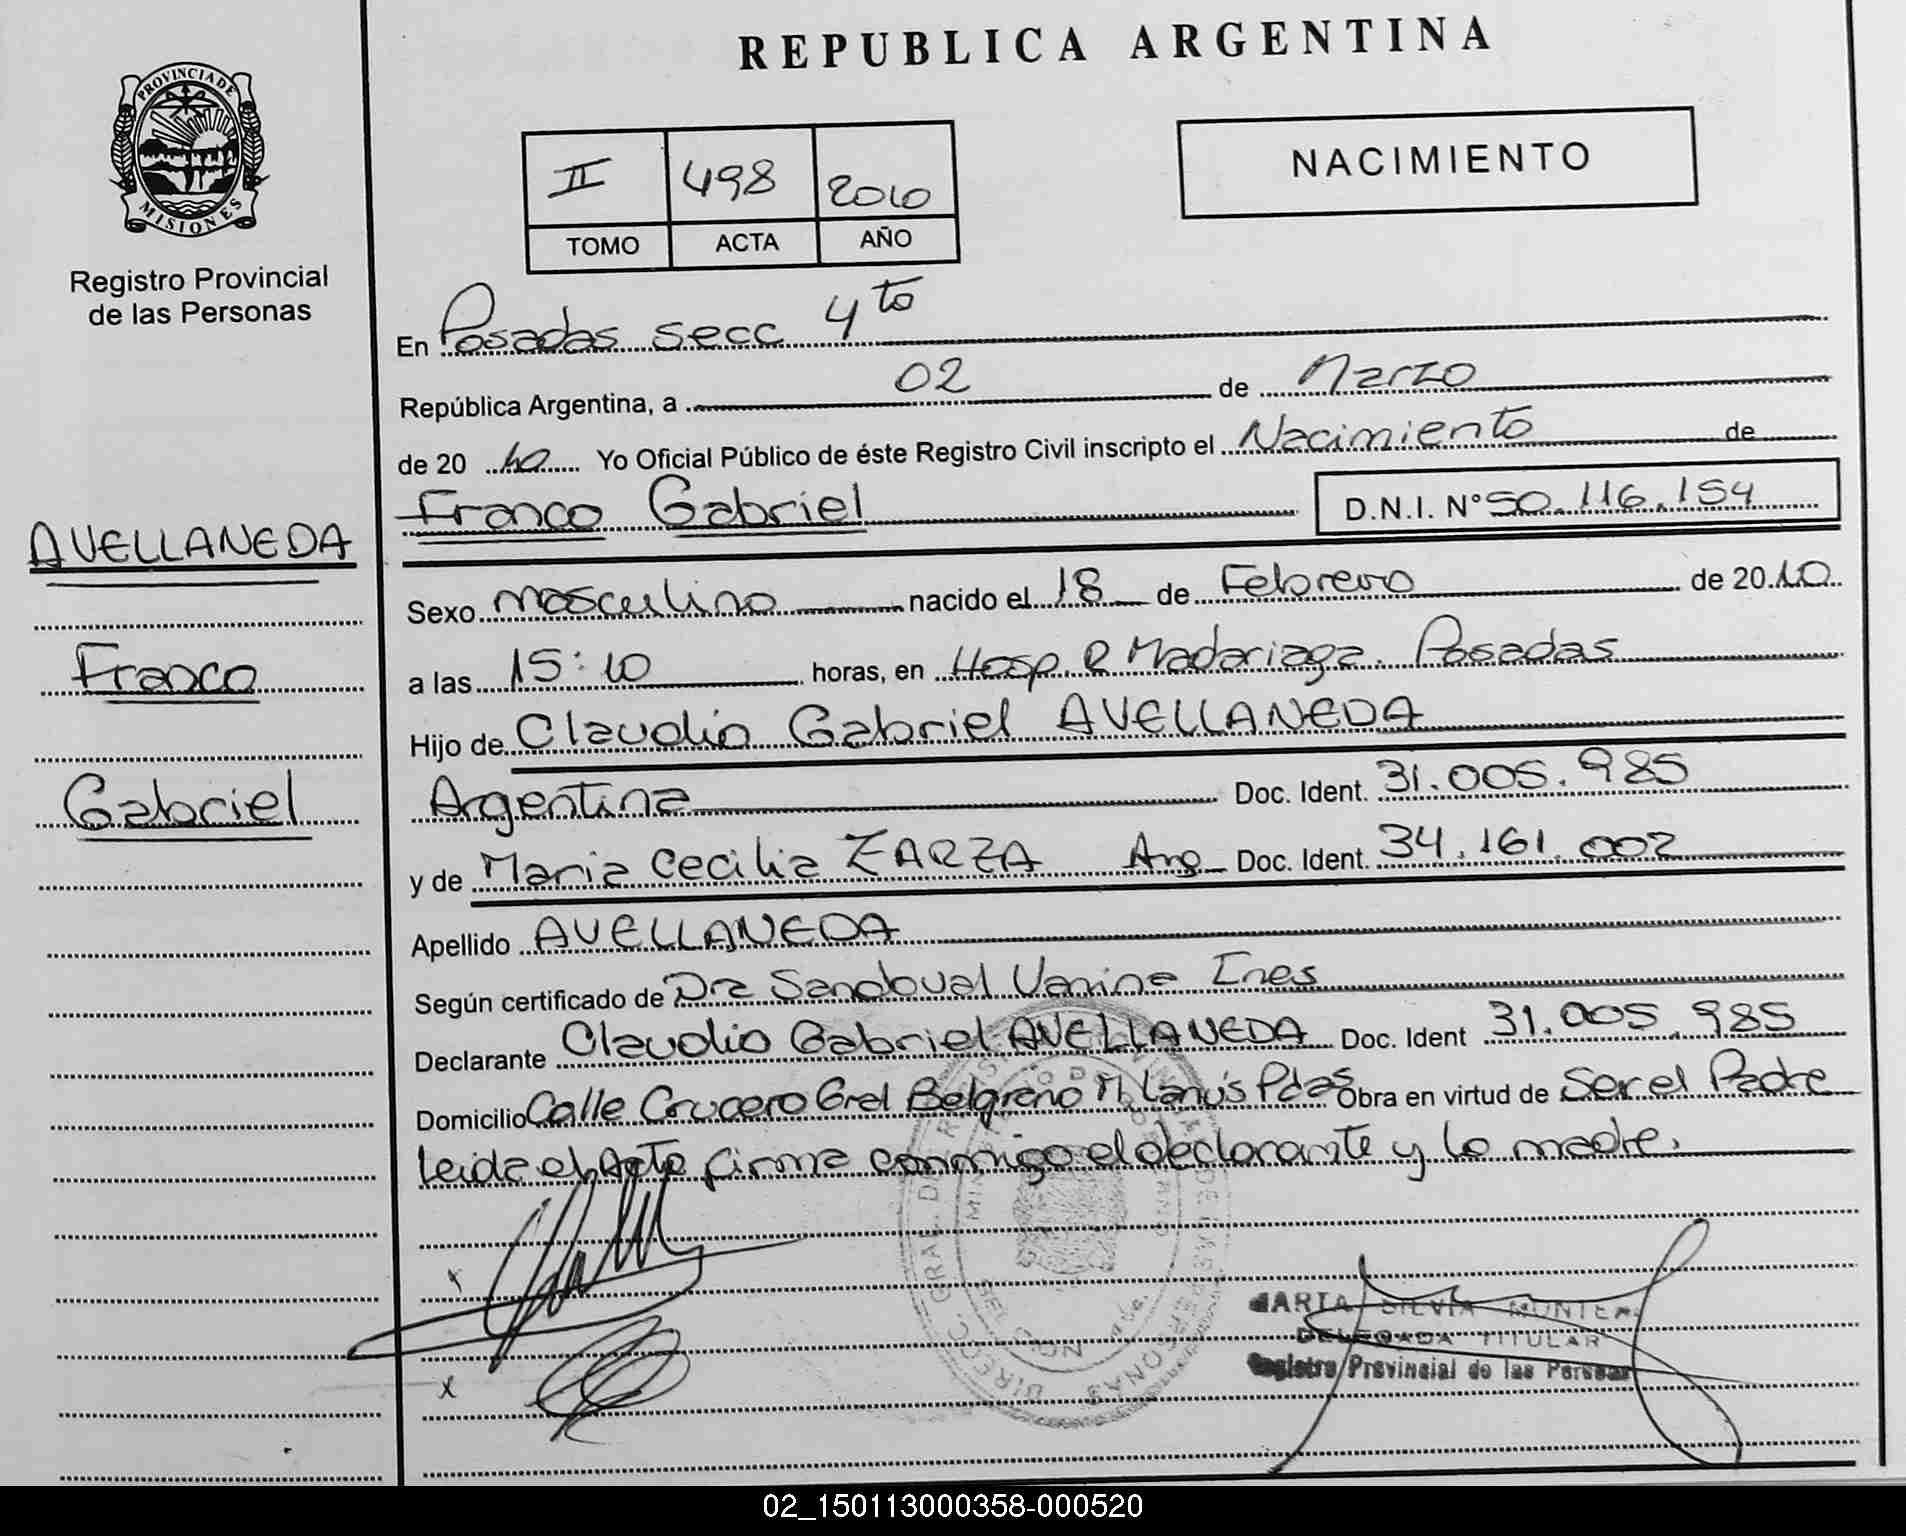 REPUBLICA ARGENTINA
PROVINCIA DE
MISIONES
Registro Provincial
de las Personas
II 498 2010
TOMO ACTA AÑO
NACIMIENTO
En Posadas secc 4to
República Argentina, a 02 de Marzo
de 20 10 Yo Oficial Público de éste Registro Civil inscripto el Nacimiento de
Franco Gabriel D.N.I. N° 50.116.154
AVELLANEDA
Franco
Gabriel
Sexo masculino nacido el 18 de Febrero de 20 10
a las 15:10 horas, en Hosp. R Madariaga. Posadas
Hijo de Claudio Gabriel AVELLANEDA
Argentina Doc. Ident. 31.005.985
y de Maria Cecilia ZARZA Arg Doc. Ident. 34.161.002
Apellido AVELLANEDA
Según certificado de Dra Sandoval Vanina Ines
Declarante Claudio Gabriel AVELLANEDA Doc. Ident 31.005.985
Domicilio Calle Crucero Gral Belgrano M Lanús Pdas Obra en virtud de Ser el Padre
Leida el Acta firma conmigo el declarante y la madre.
x
x
MARTA SILVIA
DELEGADA TITULAR
Registro Provincial de las Personas
02_150113000358-000520